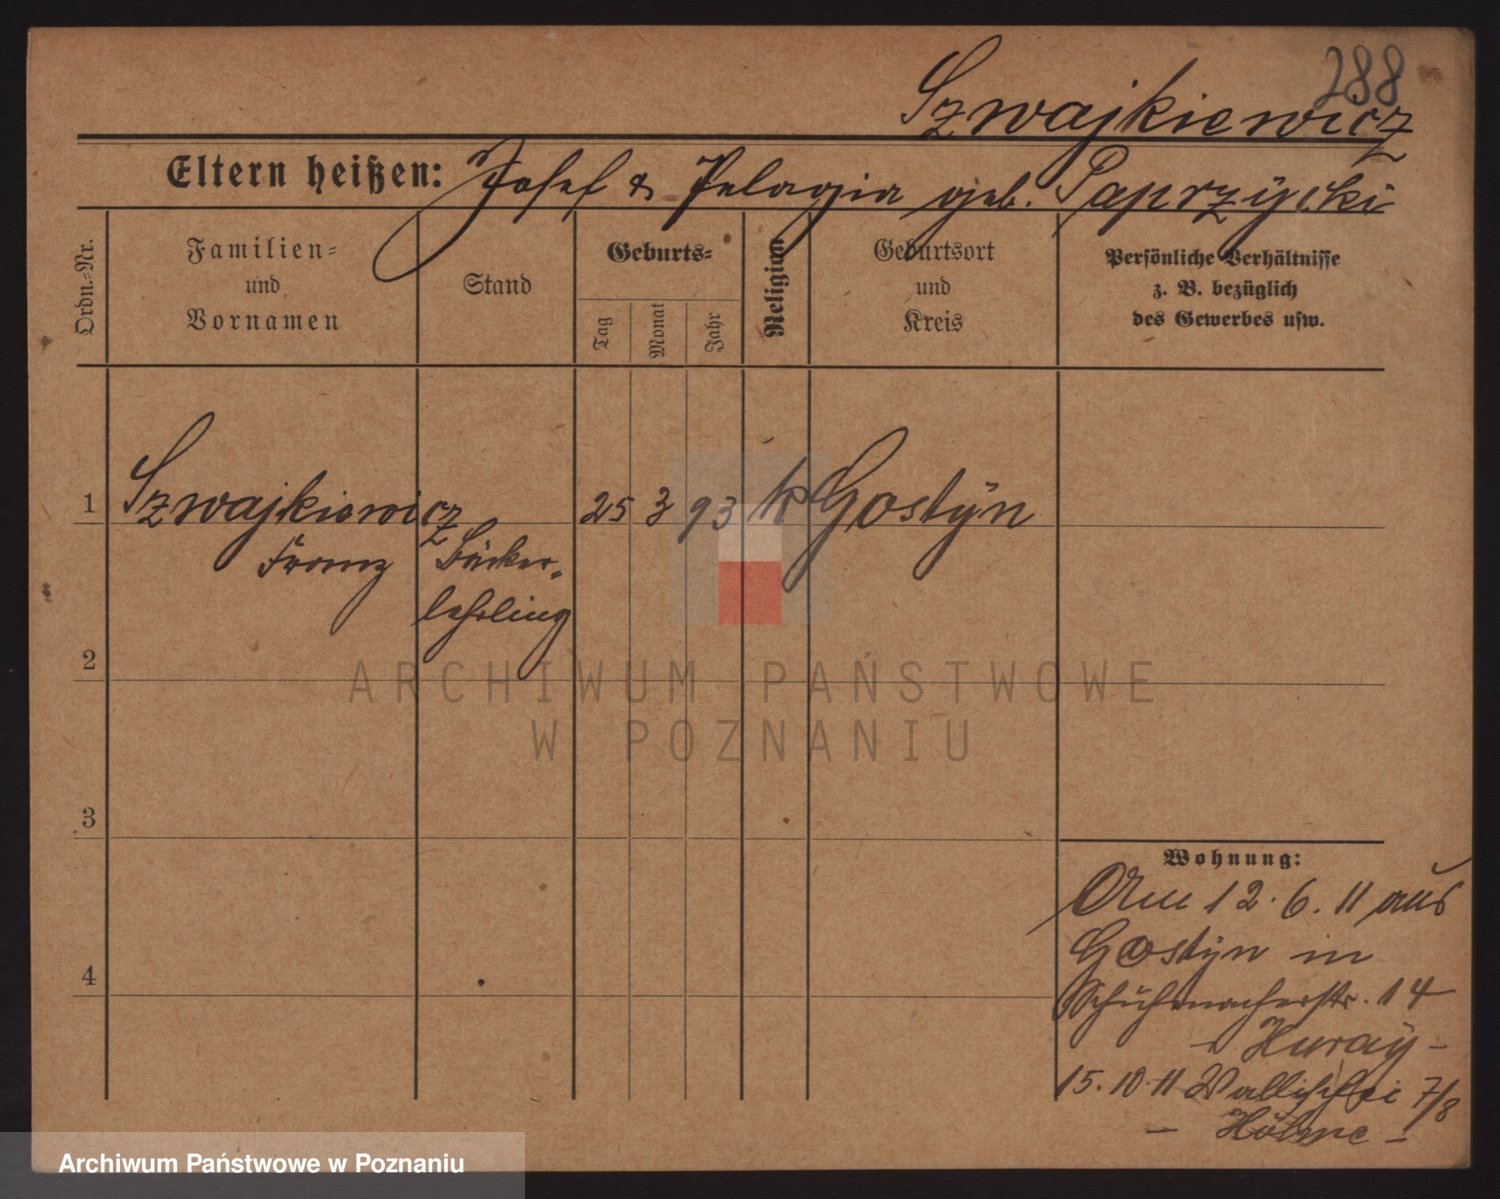 288
Szwajkiewicz
Eltern heißen: Josef & Pelagia geb. Paprzycki
Ordn.=Nr.
Familien=
und
Vornamen
Stand
Geburts=
Tag
Monat
Jahr
Religion
Geburtsort
und
Kreis
Persönliche Verhältnisse
z. B. bezüglich
des Gewerbes usw.
1 Szwajkiewicz 25 3 93 k Gostÿn
Franz Bäcker-
lehrling
2
ARCHIWUM PAŃSTWOWE
W POZNANIU
3
Wohnung:
Am 12. 6. 11 aus
Gostÿn in
4
Schuhmacherstr. 14
Huray -
15. 10. 11 Wallischei 7/8
-  -
Archiwum Państwowe w Poznaniu